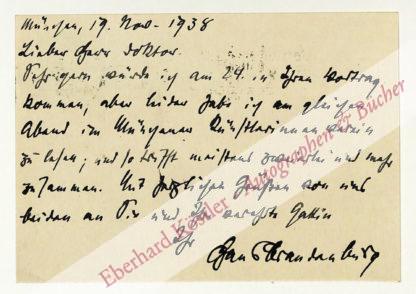 München, 19. Nov. 1938
Lieber Herr Doktor.
Sehr gern würde ich am 24. in Ihren Vortrag
kommen, aber leider habe ich am gleichen
Abend im Münchener Künstlerinnenverein
zu lesen; und so trifft meistens zweierlei und mehr
zusammen. Mit herzlichen Grüßen von uns
beiden an Sie und Ihre verehrte Gattin
Ihr
Hans Brandenburg
Eberhard Köstler Autographen & Bücher